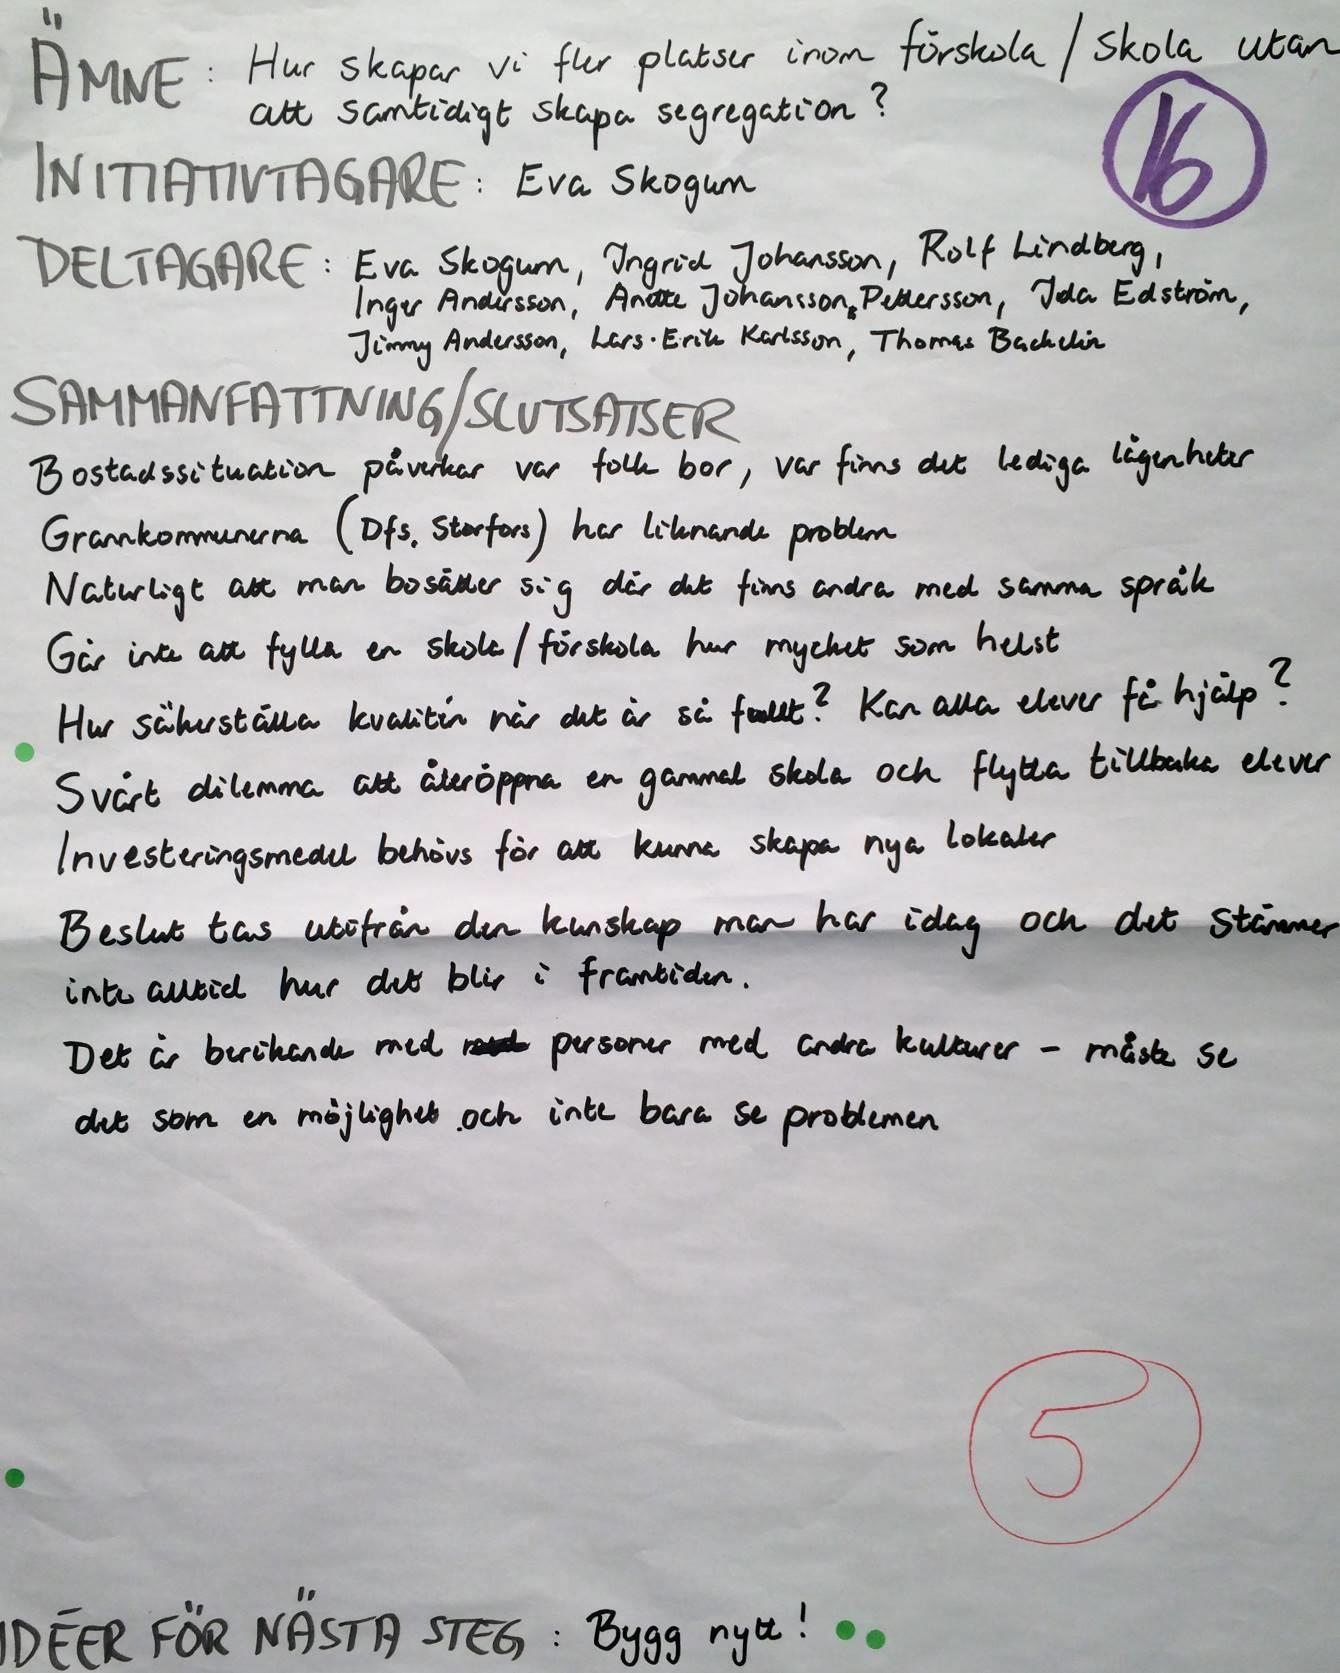 ÄMNE: Hur skapar vi fler platser inom förskola / skola utan
att samtidigt skapa segregation?
16
INITIATIVTAGARE: Eva Skogum
DELTAGARE: Eva Skogum, Ingrid Johansson, Rolf Lindberg,
Inger Andersson, Johansson Pettersson, Ida Edström,
Jimmy Andersson, Lars-Erik Karlsson, Thomas Bachelin
SAMMANFATTNING/SLUTSATSER
Bostadssituation påverkar var folk bor, var finns det lediga lägenheter
Grannkommunerna (Dfs, Storfors) har liknande problem
Naturligt att man bosätter sig där det finns andra med samma språk
Går inte att fylla en skola/förskola hur mycket som helst
Hur säkerställa kvalitén när det är så fullt? Kan alla elever få hjälp?
Svårt dilemma att återöppna en gammal skola och flytta tillbaka elever
Investeringsmedel behövs för att kunna skapa nya lokaler
Beslut tas utifrån den kunskap man har idag och det stämmer
inte alltid hur det blir i framtiden.
Det är berikande med personer med andra kulturer - måste se
det som en möjlighet och inte bara se problemen
5
IDÉER FÖR NÄSTA STEG: Bygg nytt!